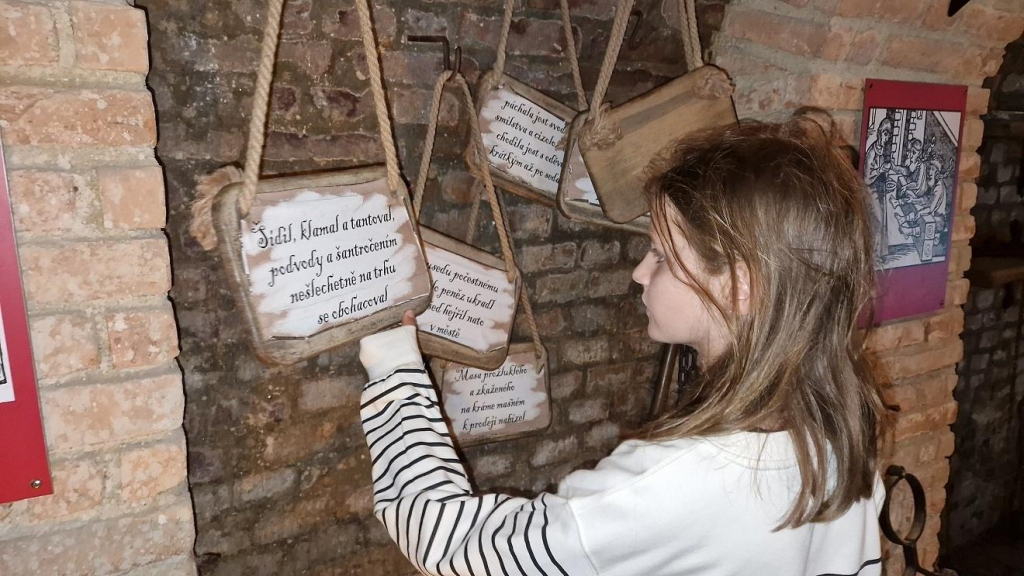 Šidil, klamal a tantoval,
podvody a šantročením
nešlechetně na trhu
se obohacoval
usedu počestnému
peněz ukradl
hejřil nato
v městě
Masa prožluklého
a zkaženého
na kráme masném
k prodeji nabízel
páchala jest svod
smilstva a cizolo
chodila jest s oděv
krátkým až po